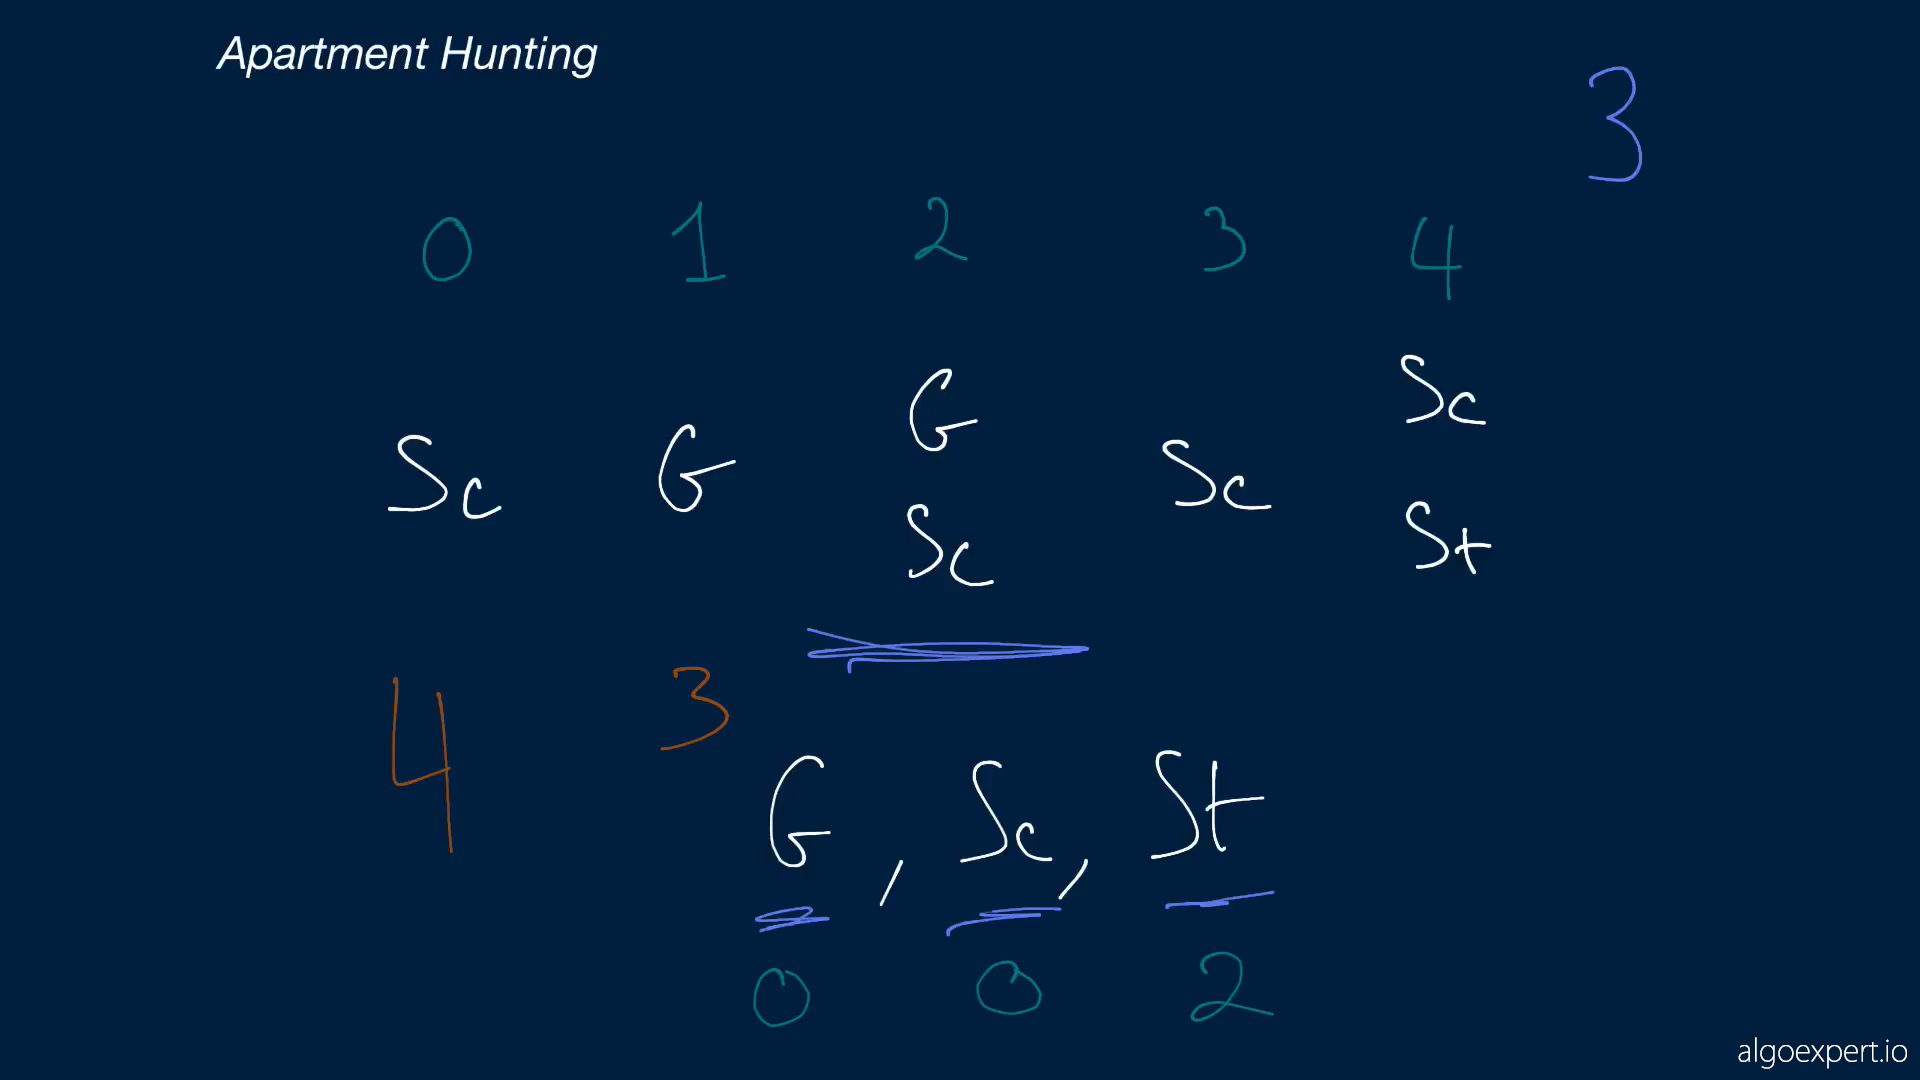 Apartment Hunting
3
0 1 2 3 4
G Sc
Sc G Sc
Sc St
4 3
G, Sc, St
0 0 2
algoexpert.io